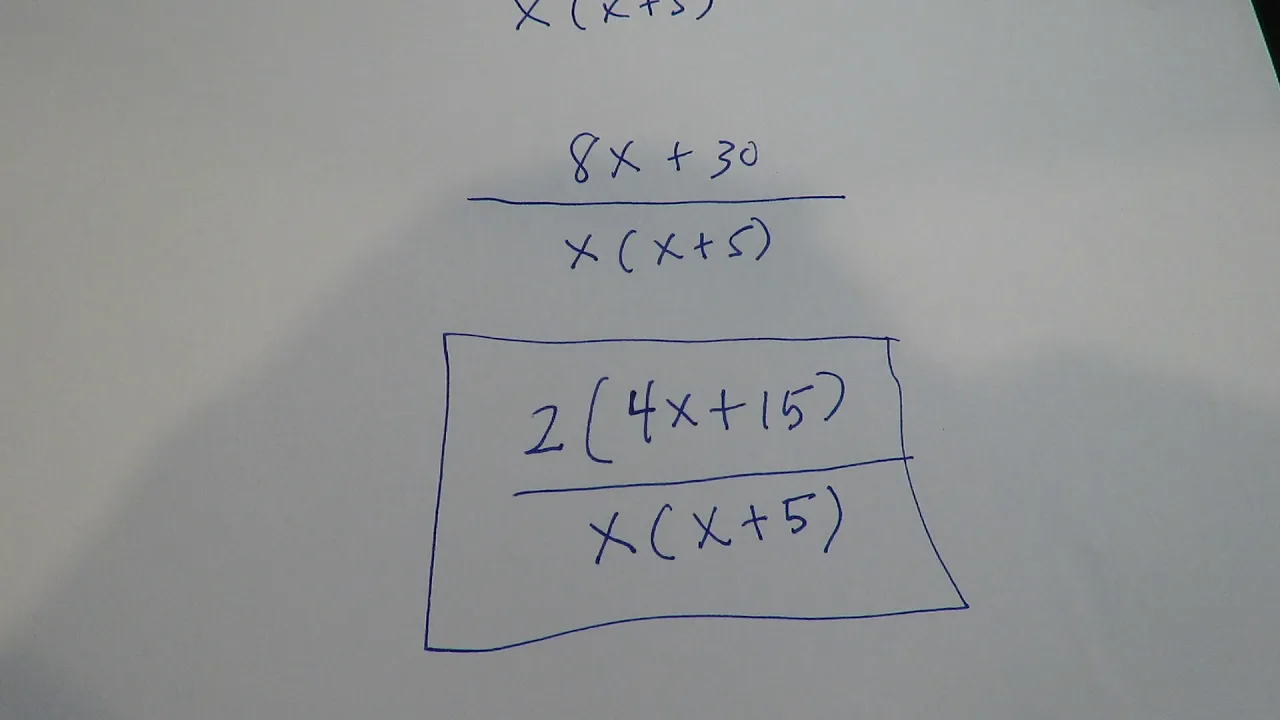 x(x+5)
8x + 30
x(x+5)
2(4x+15)
x(x+5)